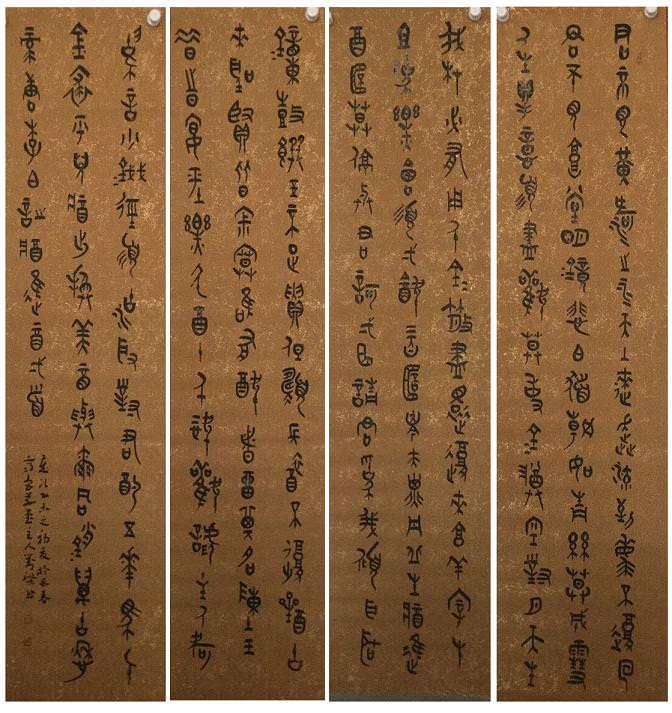 君不見黃河之水天上來奔流到海不復回
君不見高堂明鏡悲白髮朝如青絲暮成雪
人生得意須盡歡莫使金樽空對月天生
我材必有用千金散盡還復來烹羊宰牛
且為樂會須一飲三百杯岑夫子丹丘生將進
酒杯莫停與君歌一曲請君為我傾耳聽
鐘鼓饌玉不足貴但願長醉不復醒古
來聖賢皆寂寞惟有飲者留其名陳王
昔時宴平樂斗酒十千恣歡謔主人何
為言少錢徑須沽取對君酌五花馬千
金裘呼兒將出換美酒與爾同銷萬古愁
唐李白詩將進酒一首